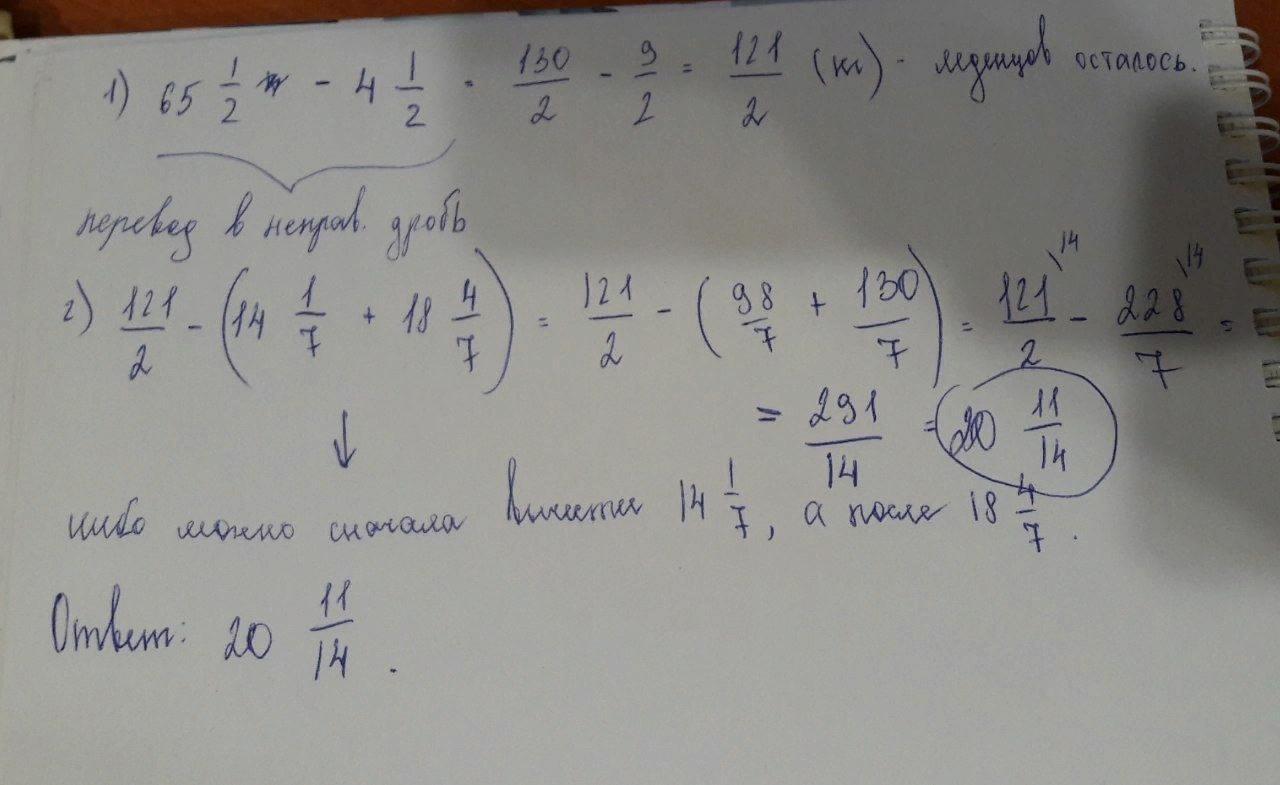 1) 65 1/2 - 4 1/2 = 130/2 - 9/2 = 121/2 (кг) - леденцов осталось.
перевод в неправ. дробь
2) 121/2 - (14 1/7 + 18 4/7) = 121/2 - (98/7 + 130/7) = 121\14/2 - 228\14/7 =
= 291/14 = 20 11/14
либо можно сначала вычесть 14 1/7, а после 18 4/7.
Ответ: 20 11/14.